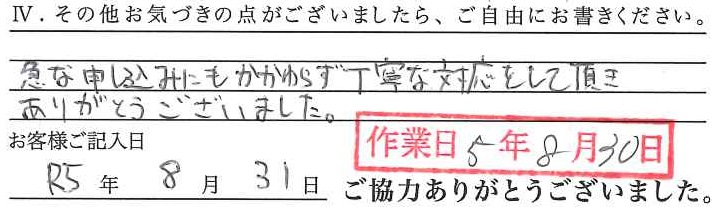 Ⅳ．その他お気づきの点がございましたら、ご自由にお書きください。
急な申し込みにもかかわらず丁寧な対応をして頂き
ありがとうございました。
お客様ご記入日
作業日5年8月30日
R5年8月31日
ご協力ありがとうございました。